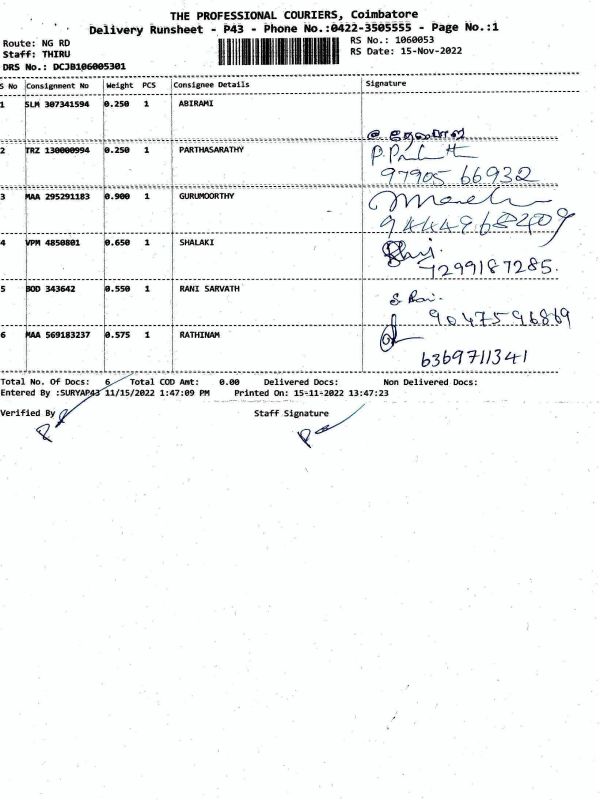 THE PROFESSIONAL COURIERS, Coimbatore
Delivery Runsheet - P43 - Phone No.:0422-3505555 - Page No.:1
Route: NG RD
RS No.: 1060053
Staff: THIRU
RS Date: 15-Nov-2022
DRS No.: DCJB106005301
S No Consignment No Weight PCS Consignee Details Signature
1 SLM 307341594 0.250 1 ABIRAMI
2 TRZ 130000994 0.250 1 PARTHASARATHY
97905 66932
3 MAA 295291183 0.900 1 GURUMOORTHY
4 VPM 4850801 0.650 1 SHALAKI
7299187285.
5 BOD 343642 0.550 1 RANI SARVATH
9047596869
6 MAA 569183237 0.575 1 RATHINAM
6369711341
Total No. Of Docs: 6 Total COD Amt: 0.00 Delivered Docs: Non Delivered Docs:
Entered By :SURYAP43 11/15/2022 1:47:09 PM Printed On: 15-11-2022 13:47:23
Verified By Staff Signature